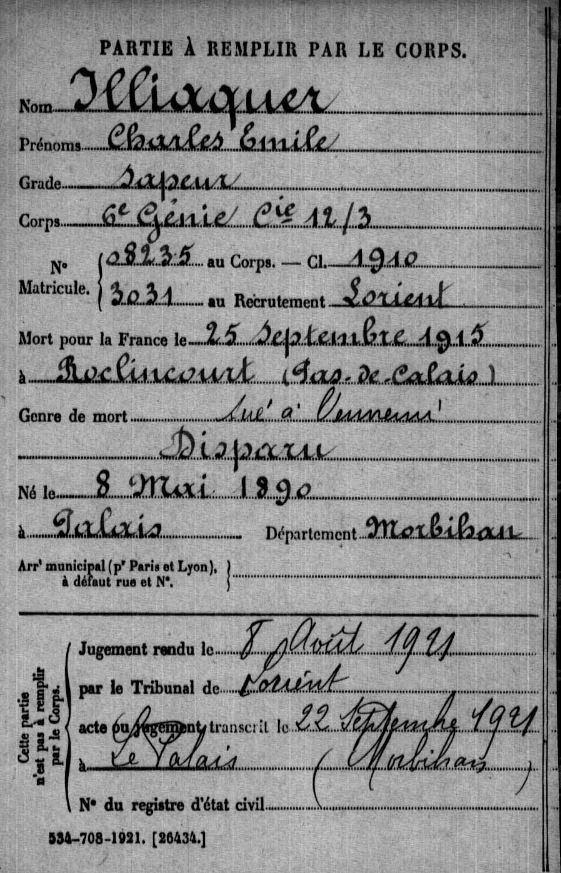 PARTIE À REMPLIR PAR LE CORPS.
Nom Illiaquer
Prénoms Charles Emile
Grade Sapeur
Corps 6e Génie Cie 12/3
N° Matricule. 08235 au Corps. — Cl. 1910
3031 au Recrutement Lorient
Mort pour la France le 25 Septembre 1915
à Roclincourt (Pas-de-Calais)
Genre de mort tué à l'ennemi
Disparu
Né le 8 Mai 1890
à Palais Département Morbihan
Arrt municipal (pr Paris et Lyon),
à défaut rue et N°.
Cette partie n'est pas à remplir par le Corps.
Jugement rendu le 8 Août 1921
par le Tribunal de Lorient
acte ou jugement transcrit le 22 Septembre 1921
à Le Palais (Morbihan)
N° du registre d'état civil
534-708-1921. [26434.]